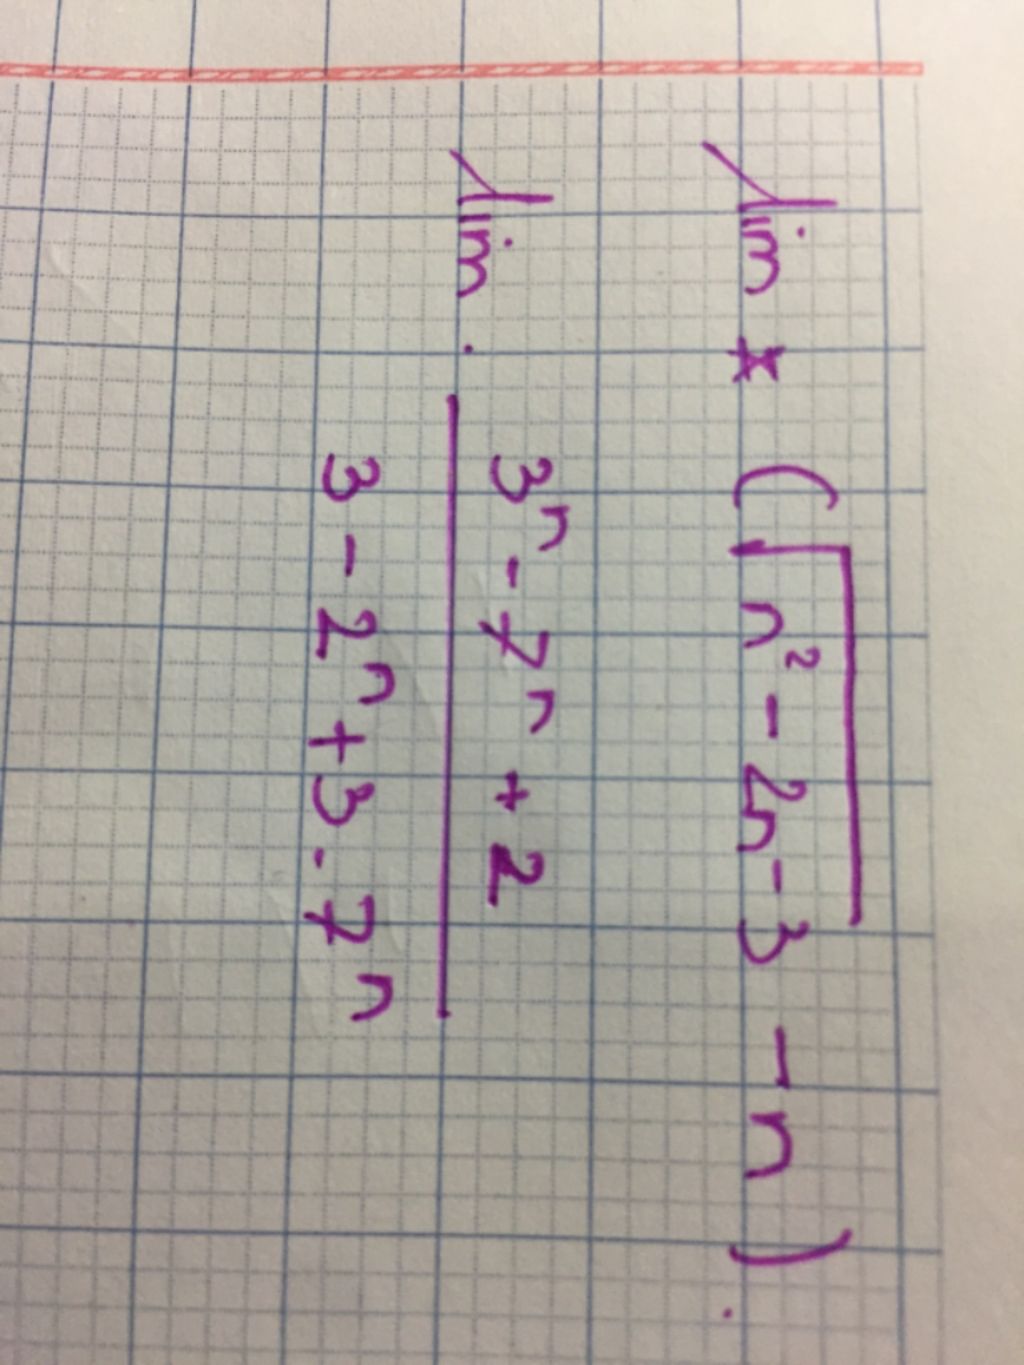 lim * (√(n² - 2n - 3) - n).
lim . (3ⁿ - 7ⁿ + 2) / (3 - 2ⁿ + 3 . 7ⁿ)